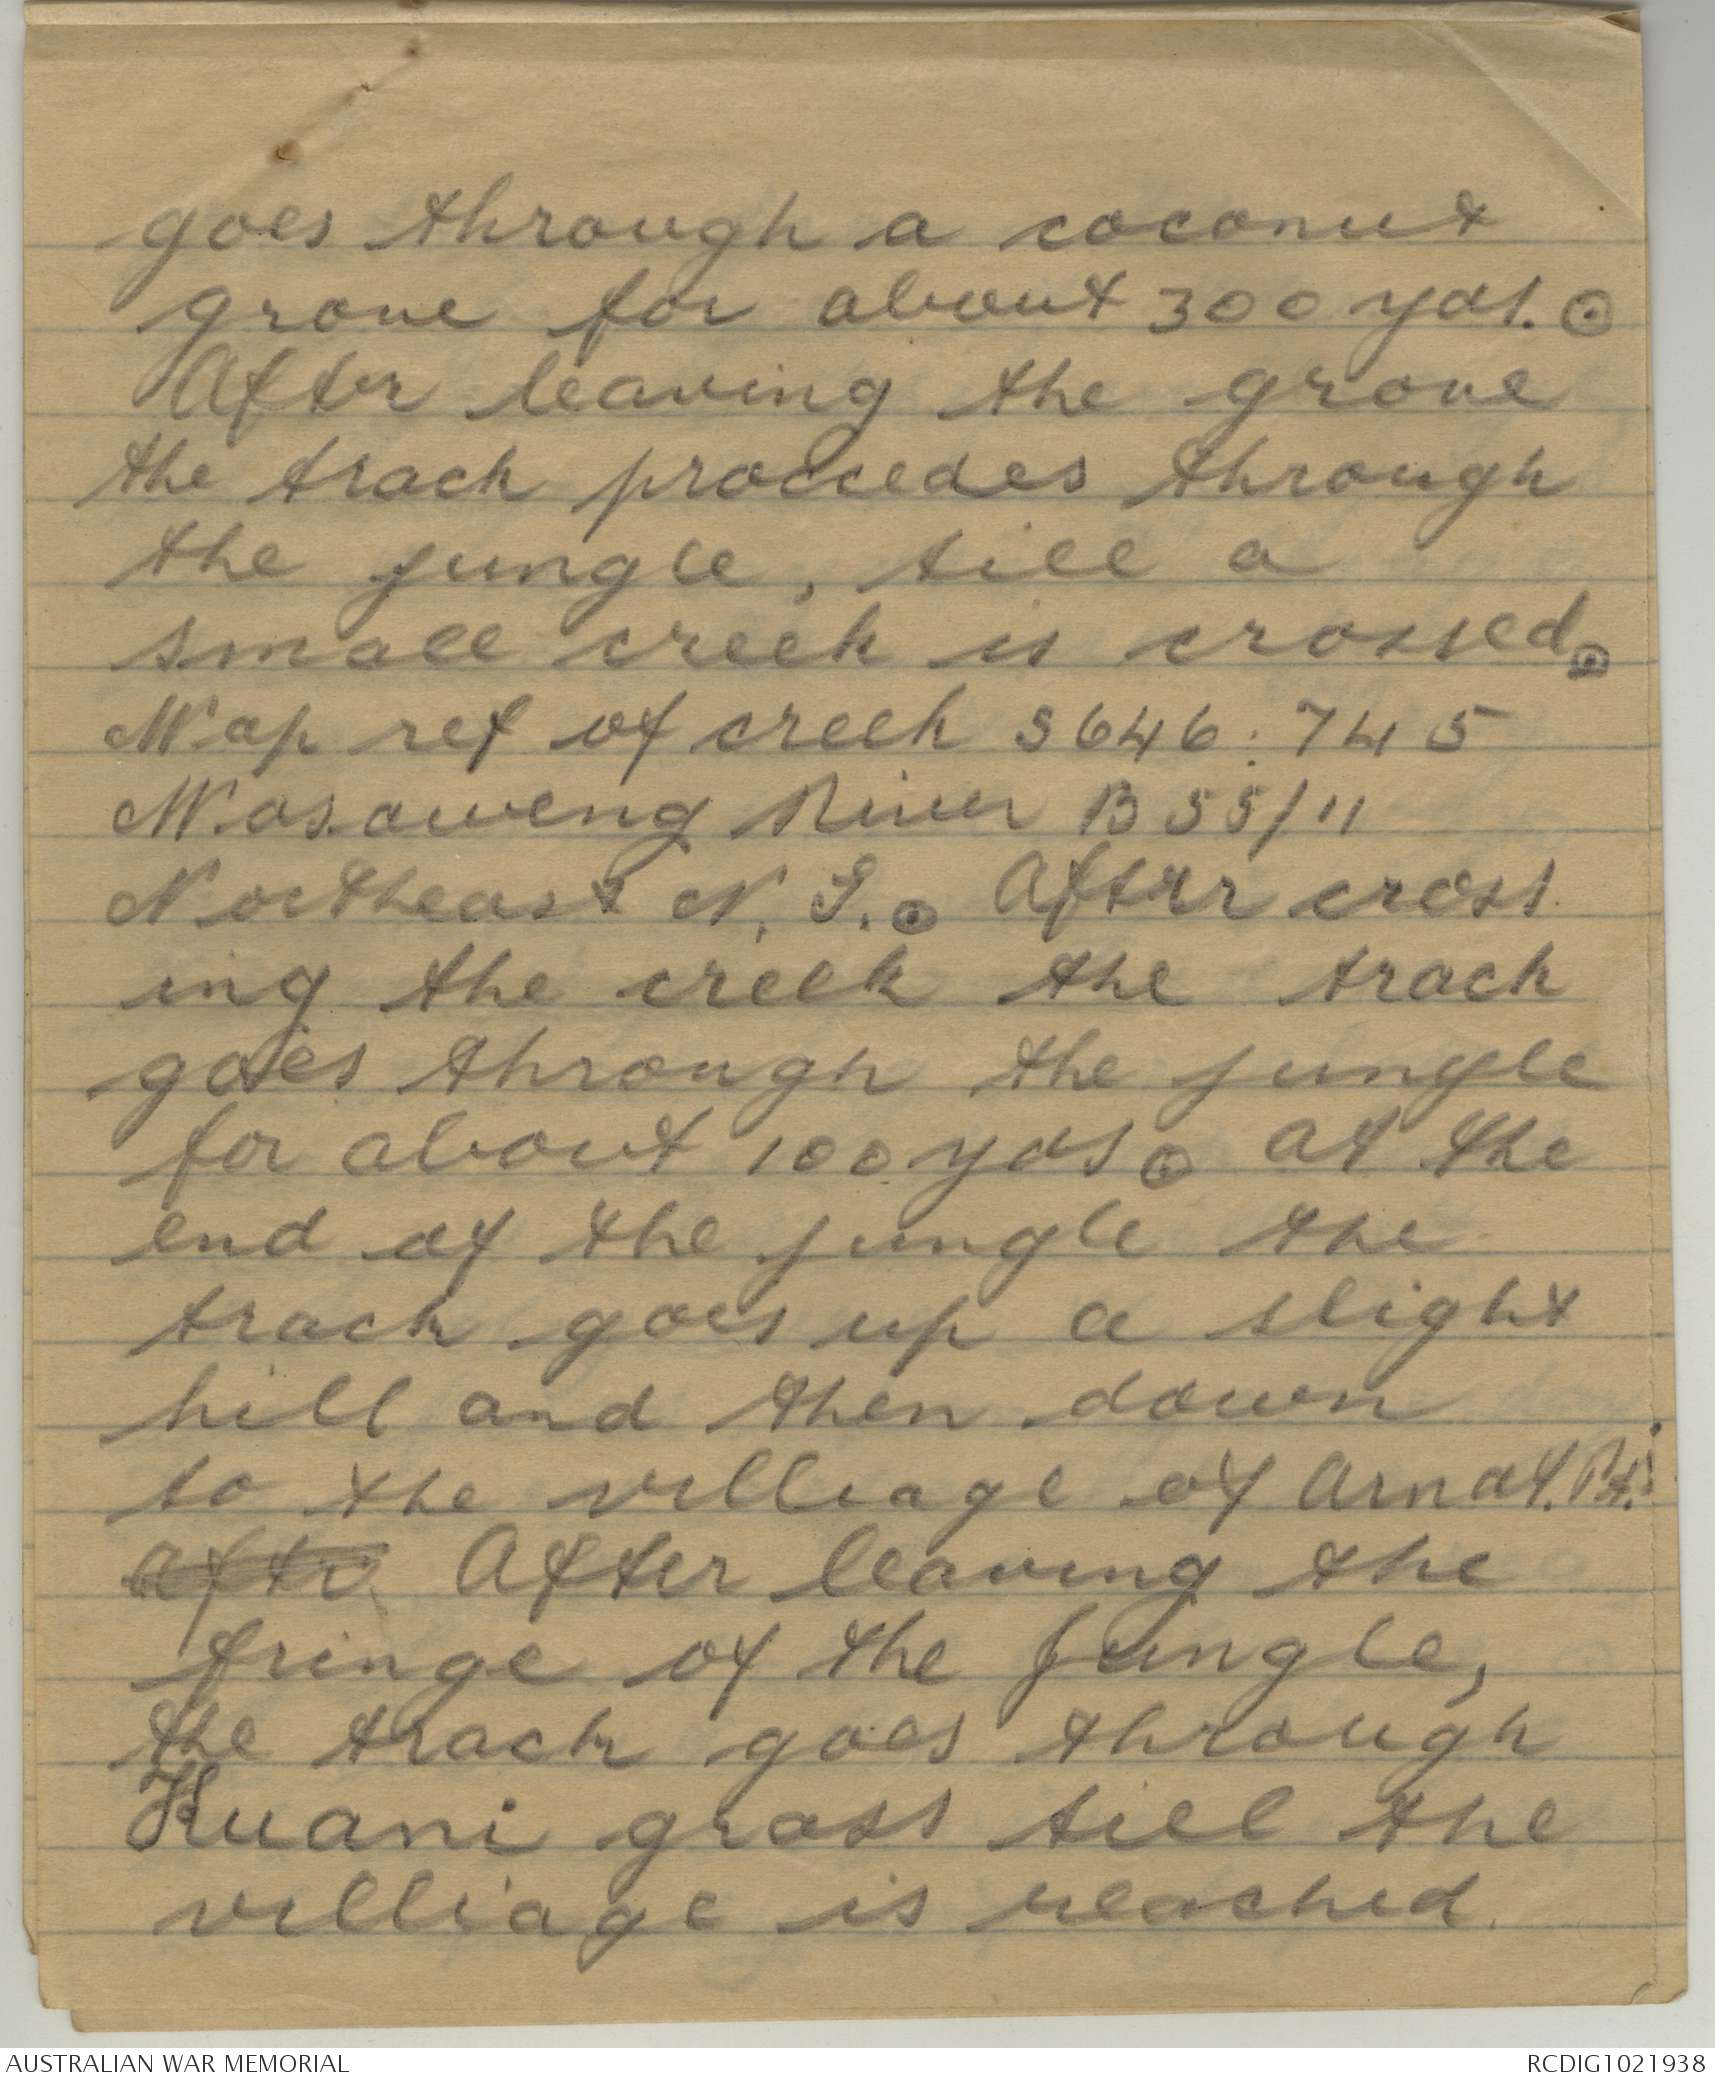 goes through a coconut
grove for about 300 yds.
After leaving the grove
the track proccedes through
the jungle, till a
small creek is crossed.
Map ref of creek 5646:745
Masaweng River B55/11
Northeast N.G. After cross
ing the creek the track
goes through the jungle
for about 100 yds. At the
end of the jungle the
track goes up a slight
hill and then down
to the villiage of Arnat. Pt.
After After leaving the
fringe of the jungle,
the track goes through
Kuani grass till the
villiage is reached.
AUSTRALIAN WAR MEMORIAL
RCDIG1021938